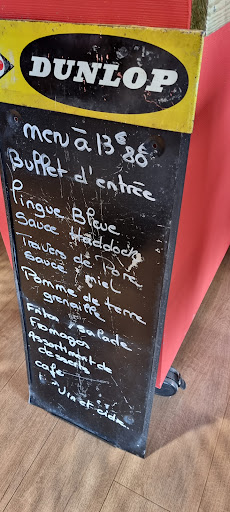 DUNLOP
menu à 13€80
Buffet d'entrée
Lingue Bleue
Sauce Haddock
Travers de Porc
sauce miel
Pomme de terre
grenaille
Frites / salade
Fromages
Assortiment de
desserts
café
vin et cidre.